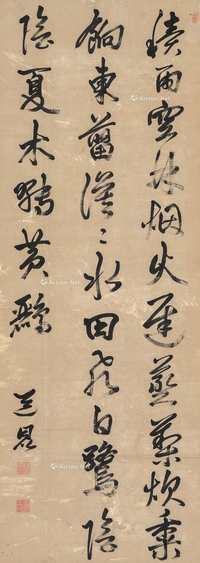 積雨空林烟火遲蒸藜炊黍
餉東菑漠〻水田飛白鷺陰
陰夏木囀黃鸝